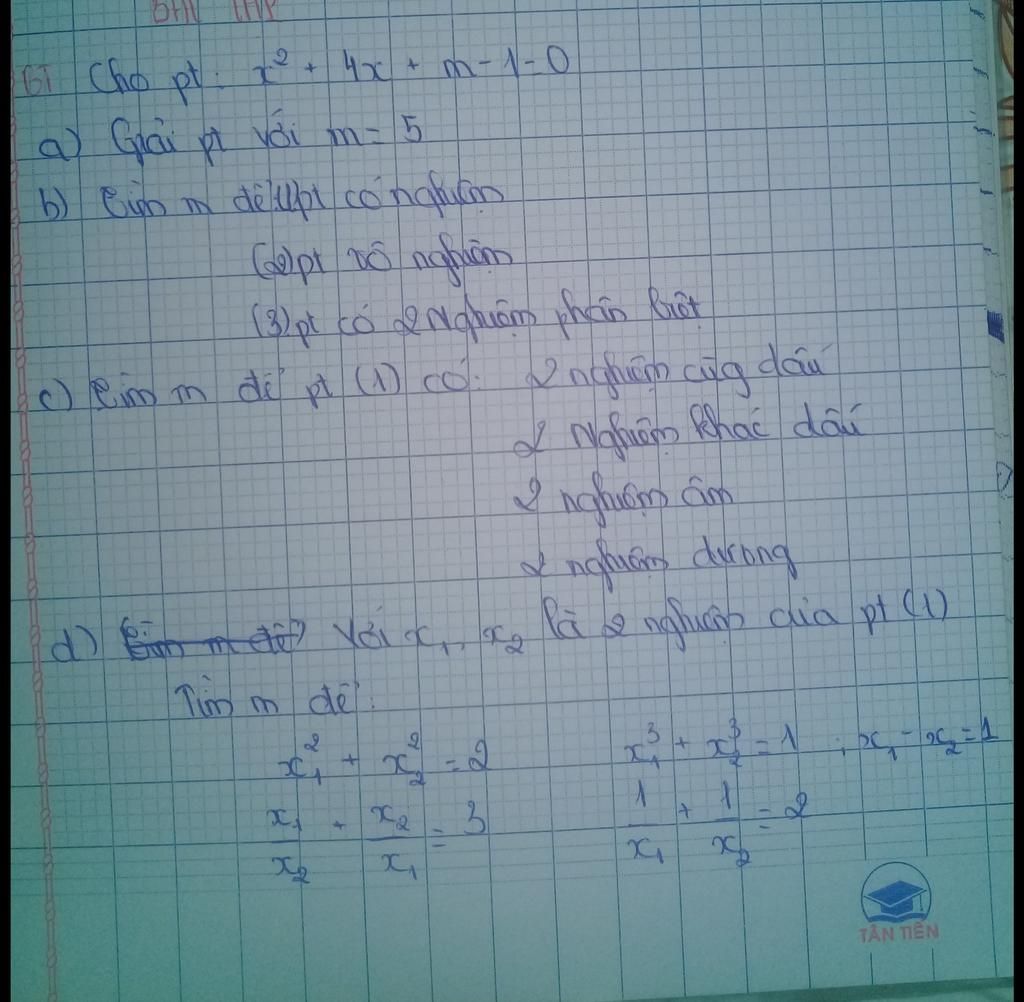 BT Cho pt: x² + 4x + m - 1 = 0
a) Giải pt với m = 5
b) Tìm m để (1) pt có nghiệm
(2) pt vô nghiệm
(3) pt có 2 nghiệm phân biệt
c) Tìm m để pt (1) có: 2 nghiệm cùng dấu
2 Nghiệm khác dấu
2 nghiệm âm
2 nghiệm dương
d) Với x₁, x₂ là 2 nghiệm của pt (1)
Tìm m để:
x₁² + x₂² = 2 x₁³ + x₂³ = 1 ; x₁ - x₂ = 1
x₁/x₂ + x₂/x₁ = 3 1/x₁ + 1/x₂ = 2
TÂN TIẾN